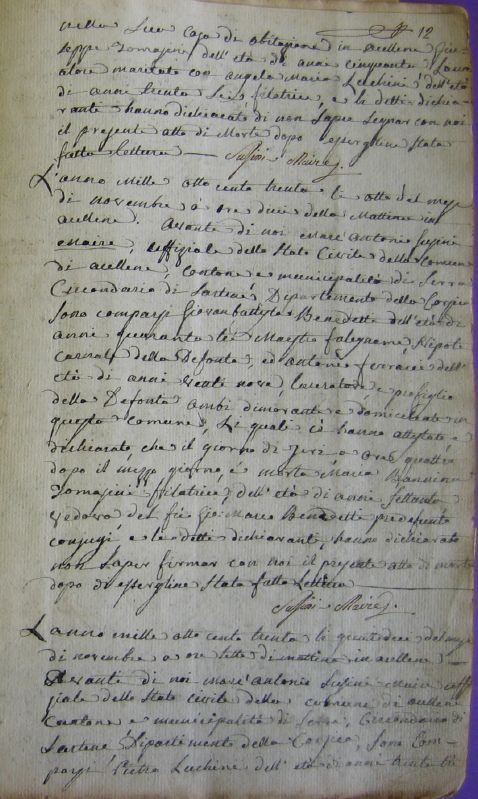 12
nella sua casa di abitazione in aullene Giu-
seppe Tomasini dell'età di anni cinquanta Lavo
ratore maritato con angela Maria Lucchini dell'età
di anni trenta sei filatrice, e le detti dichia-
ranti hanno dichiarato di non saper segnar con noi
il presente atto di Morte dopo essergline stata
fatta lettura —
Susini Maire
L'anno mille otto cento trenta li otto del mese
di novembre a ore dieci della Mattina in
aullene. Avante di noi Marc'Antonio Susini
Maire, uffiziale dello Stato Civile della Comuna
di aullene, cantone e municipalità di Serra
Circondario di Sartené, Dipartimento della Corsica
Sono comparsi Giovanbattista Benedetti dell'età di
anni quaranta tre Maestro falegname, Nipote
carnale della Defonta, ed Antonio ferracci dell'
età di anni venti nove, lavoratore, e
della Defonta ambi dimoranti e domiciliati in
questa comune, Li quali ci hanno attestato e
dichiarato, che il giorno di Jeri a ore quattro
dopo il mezzo giorno, è morta Maria
Tomasini filatrice dell'età di anni settanta
vedova del fù Gio: Marco Benedetti predefunto
conjugi, e le dette dichiaranti, hanno dichiarato
non saper firmar con noi il presente atto di morte
dopo di essergline stata fatta Lettura
Susini Maire
L'anno mille otto cento trenta li quindeci del mese
di novembre a ore sette di mattina in aullene —
Avanti di noi marc'antonio Susini maire uffi
ziale dello Stato civile della comuna di aullene
Cantone e municipalità di Serra, Circondario di
Sartene Dipartimento della Corsica, sono Com-
parsi Pietro Luchini dell'età di anni trenta tre